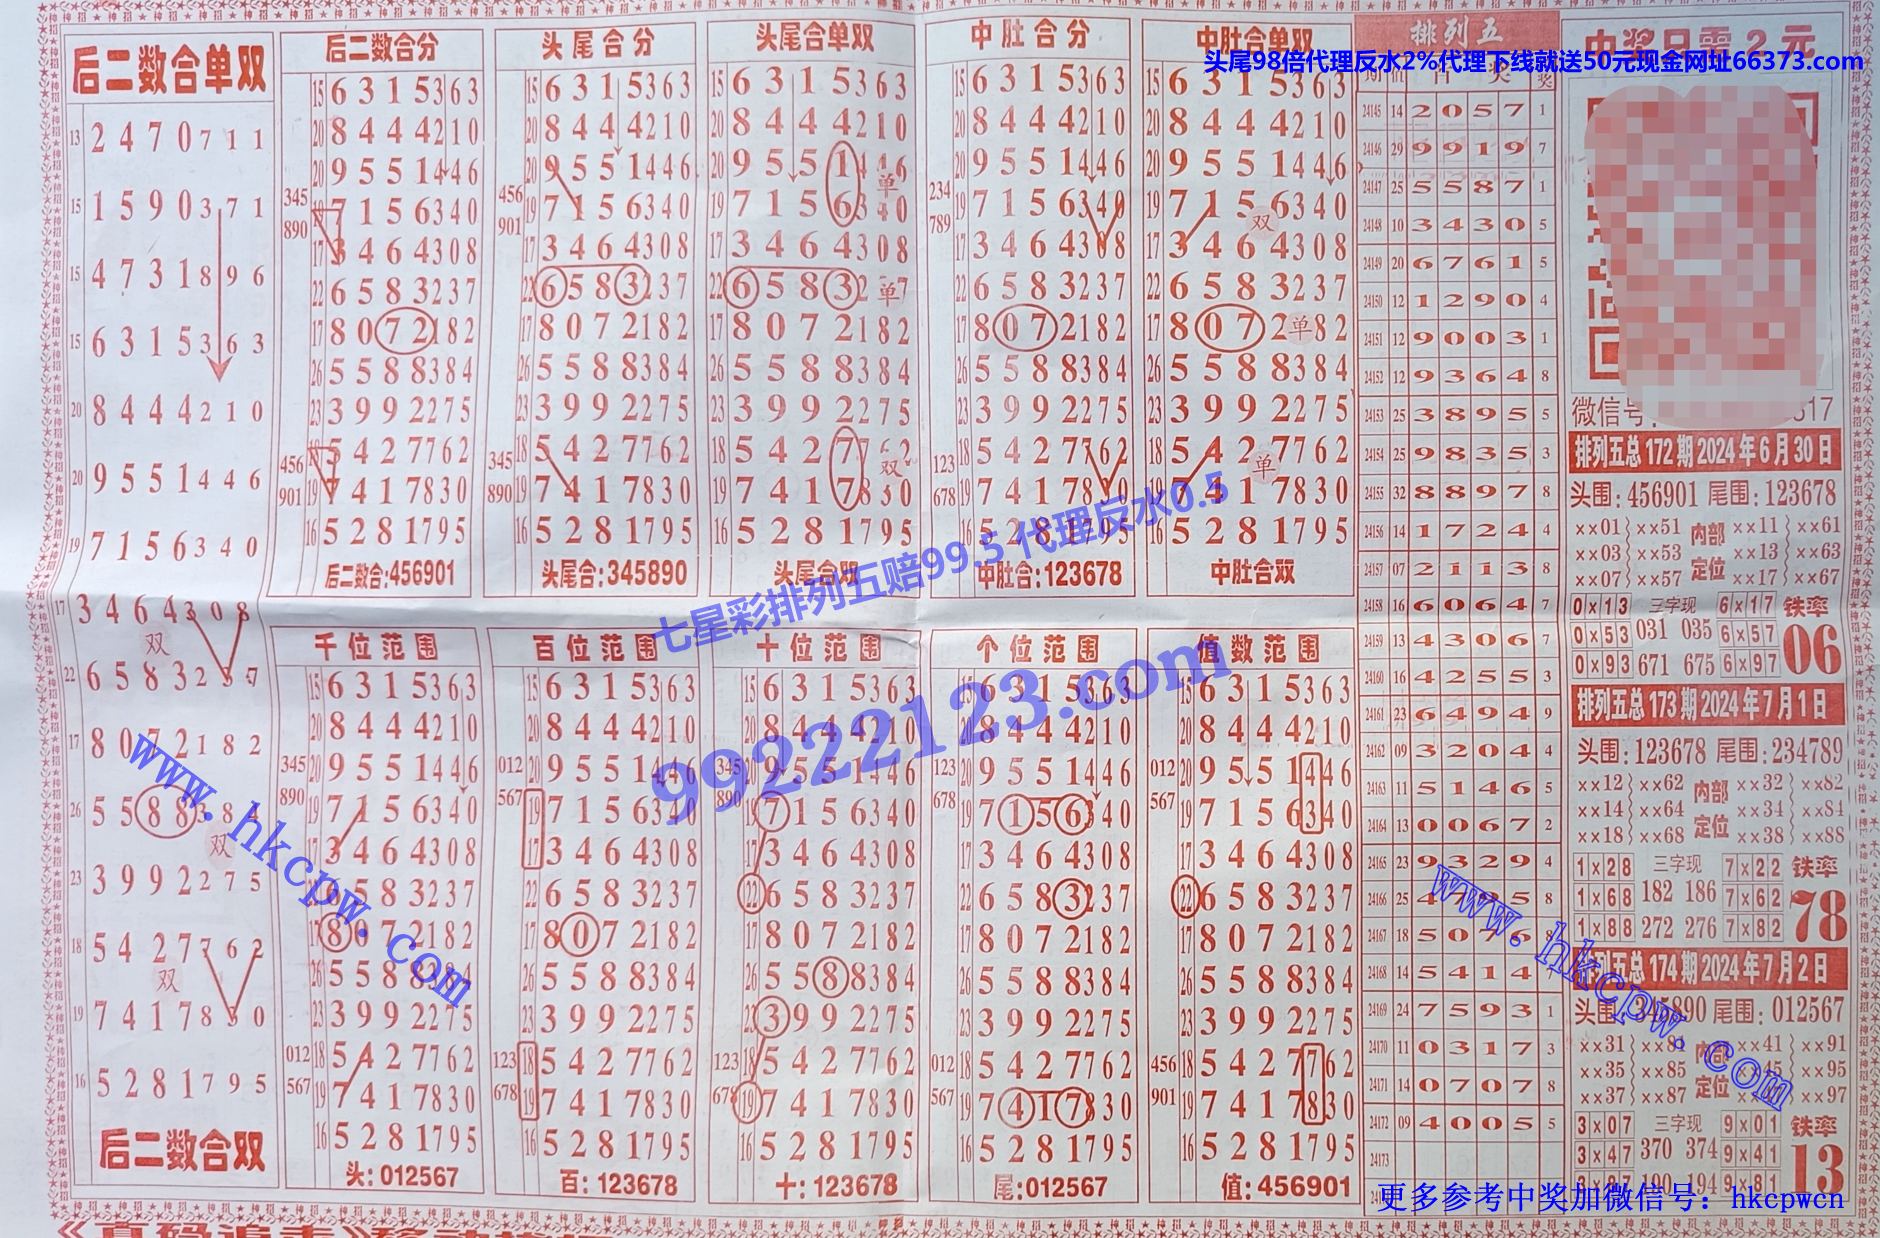 后二数合单双
13 2470711
15 1590371
15 4731896
15 6315363
20 8444210
20 9551446
19 7156340
17 3464308
双
22 6583237
17 8072182
26 5588384
双
23 3992275
18 5427762
双
19 7417830
16 5281795
后二数合双
后二数合分
15 6315363
20 8444210
20 9551446
345
890
7156340
17 3464308
22 6583237
17 8072182
26 5588384
23 3992275
456
901
5427762
19 7417830
16 5281795
后二数合:456901
头尾合分
15 6315363
20 8444210
20 9551446
456
901
19 7156340
17 3464308
22 6583237
17 8072182
26 5588384
23 3992275
345
890
18 5427762
19 7417830
16 5281795
头尾合:345890
头尾合单双
15 6315363
20 8444210
20 9551446
单
19 7156340
17 3464308
22 65832 7
单
17 8072182
26 5588384
23 3992275
18 5427762
双
19 7417830
16 5281795
头尾合双
中肚合分
15 6315363
20 8444210
20 9551446
234
789
19 7156340
17 3464308
22 6583237
17 8072182
26 5588384
23 3992275
123
678
18 5427762
19 7417830
16 5281795
中肚合:123678
中肚合单双
15 6315363
20 8444210
20 9551446
19 7156340
双
17 3464308
22 6583237
17 8072 82
单
26 5588384
23 3992275
18 5427762
单
19 7417830
16 5281795
中肚合双
千位范围
15 6315363
20 8444210
345
890
20 9551446
19 7156340
17 3464308
22 6583237
17 8072182
26 5588384
23 3992275
012
567
18 5427762
19 7417830
16 5281795
头:012567
百位范围
15 6315363
20 8444210
012
567
20 9551446
19 7156340
17 3464308
22 6583237
17 8072182
26 5588384
23 3992275
123
678
18 5427762
19 7417830
16 5281795
百:123678
十位范围
15 6315363
20 8444210
345
890
20 9551446
19 7156340
17 3464308
22 6583237
17 8072182
26 5588384
23 3992275
123
678
18 5427762
19 7417830
16 5281795
十:123678
个位范围
15 6315363
20 8444210
123
678
20 9551446
19 7156340
17 3464308
22 6583237
17 8072182
26 5588384
23 3992275
012
567
18 5427762
19 7417830
16 5281795
尾:012567
值数范围
15 6315363
20 8444210
012
567
20 9551446
19 7156340
17 3464308
22 6583237
17 8072182
26 5588384
23 3992275
456
901
18 5427762
19 7417830
16 5281795
值:456901
排列五
24145 14 2057 1
24146 29 9919 7
24147 25 5587 1
24148 10 3430 5
24149 20 6761 5
24150 12 1290 4
24151 12 9003 1
24152 12 9364 8
24153 25 3895 5
24154 25 9835 3
24155 32 8897 8
24156 14 1724 4
24157 07 2113 8
24158 16 6064 7
24159 13 4306 7
24160 16 4255 3
24161 23 6494 9
24162 09 3204 4
24163 11 5146 5
24164 13 0067 2
24165 23 9329 4
24166 25
24167 18
24168 14 5414
24169 24 7593 1
24170 11 0317 3
24171 14 0707 8
24172 09 4005 5
24173
中奖只需2元
头尾98倍代理反水2%代理下线就送50元现金网址66373.com
微信号
排列五总172期2024年6月30日
头围:456901 尾围:123678
××01 ××51 内部 ××11 ××61
××03 ××53 ××13 ××63
××07 ××57 定位 ××17 ××67
0×13 三字现 6×17 铁率
0×53 031 035 6×57 06
0×93 671 675 6×97
排列五总173期2024年7月1日
头围:123678 尾围:234789
××12 ××62 内部 ××32 ××82
××14 ××64 ××34 ××84
××18 ××68 定位 ××38 ××88
1×28 三字现 7×22 铁率
1×68 182 186 7×62 78
1×88 272 276 7×82
排列五总174期2024年7月2日
头围:345890 尾围:012567
××31 ××81 内部 ××41 ××91
××35 ××85 ××45 ××95
××37 ××87 定位 ××97
3×07 三字现 9×01 铁率
3×47 370 374 9×41 13
190 194 9×81
七星彩排列五赔99.5 代理反水0.5
99222123.com
www.hkcpw.com
www.hkcpw.com
更多参考中奖加微信号：hkcpwcn